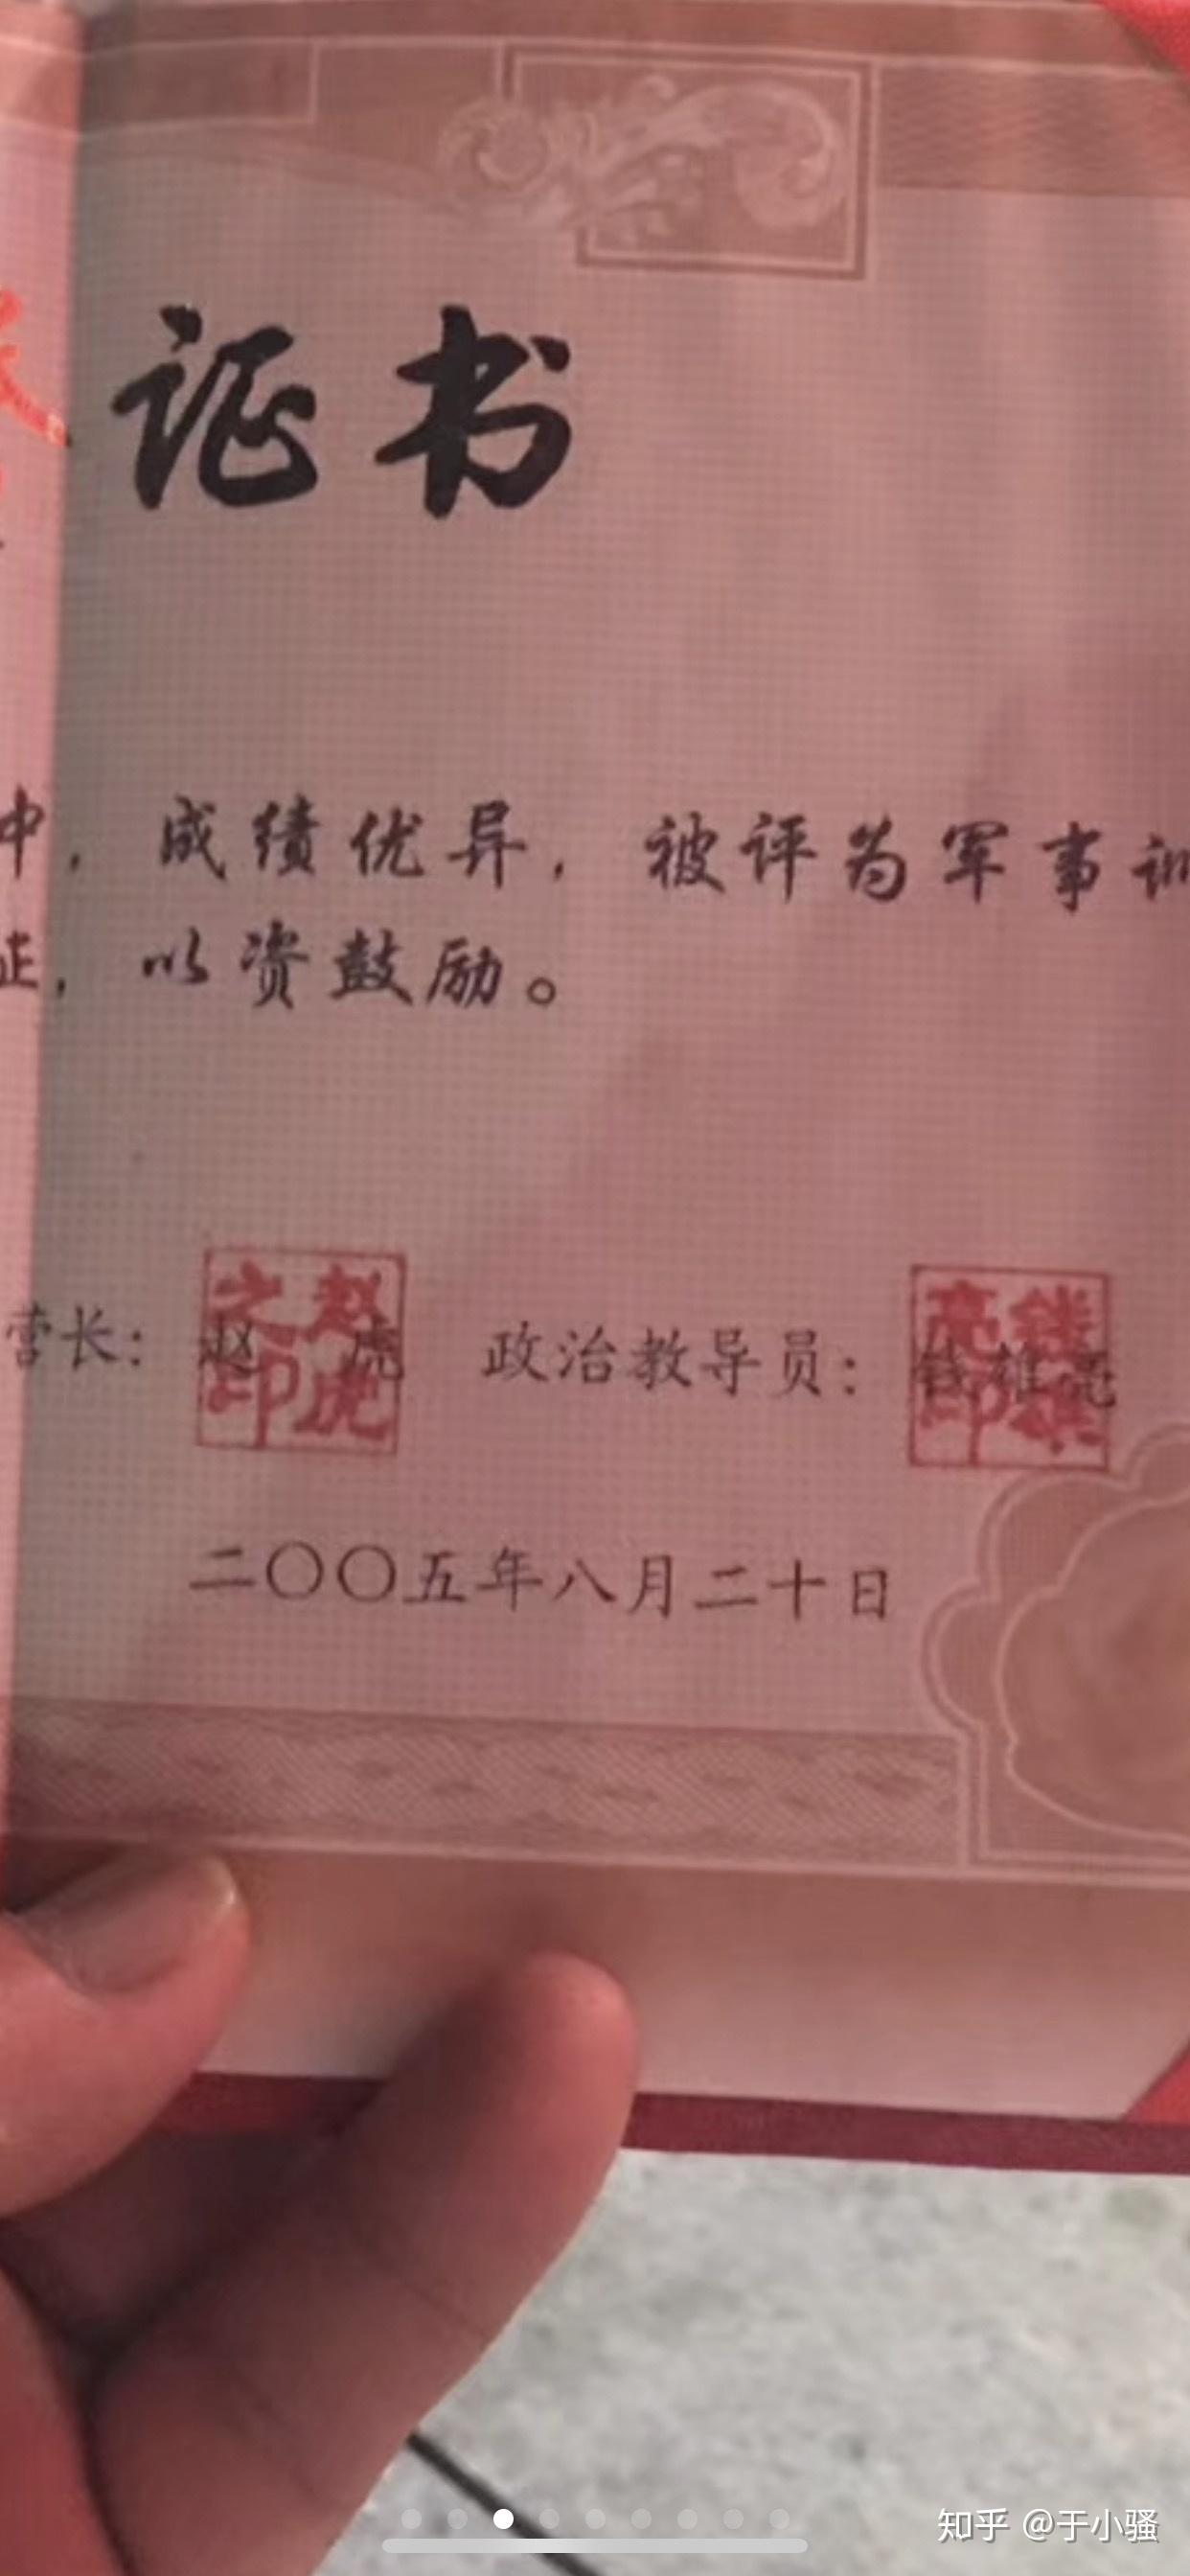 证书
中，成绩优异，被评为军事训
证，以资鼓励。
营长：赵虎 政治教导员：钱雄亮
之赵 亮钱
印虎 印雄
二〇〇五年八月二十日
知乎 @于小骚